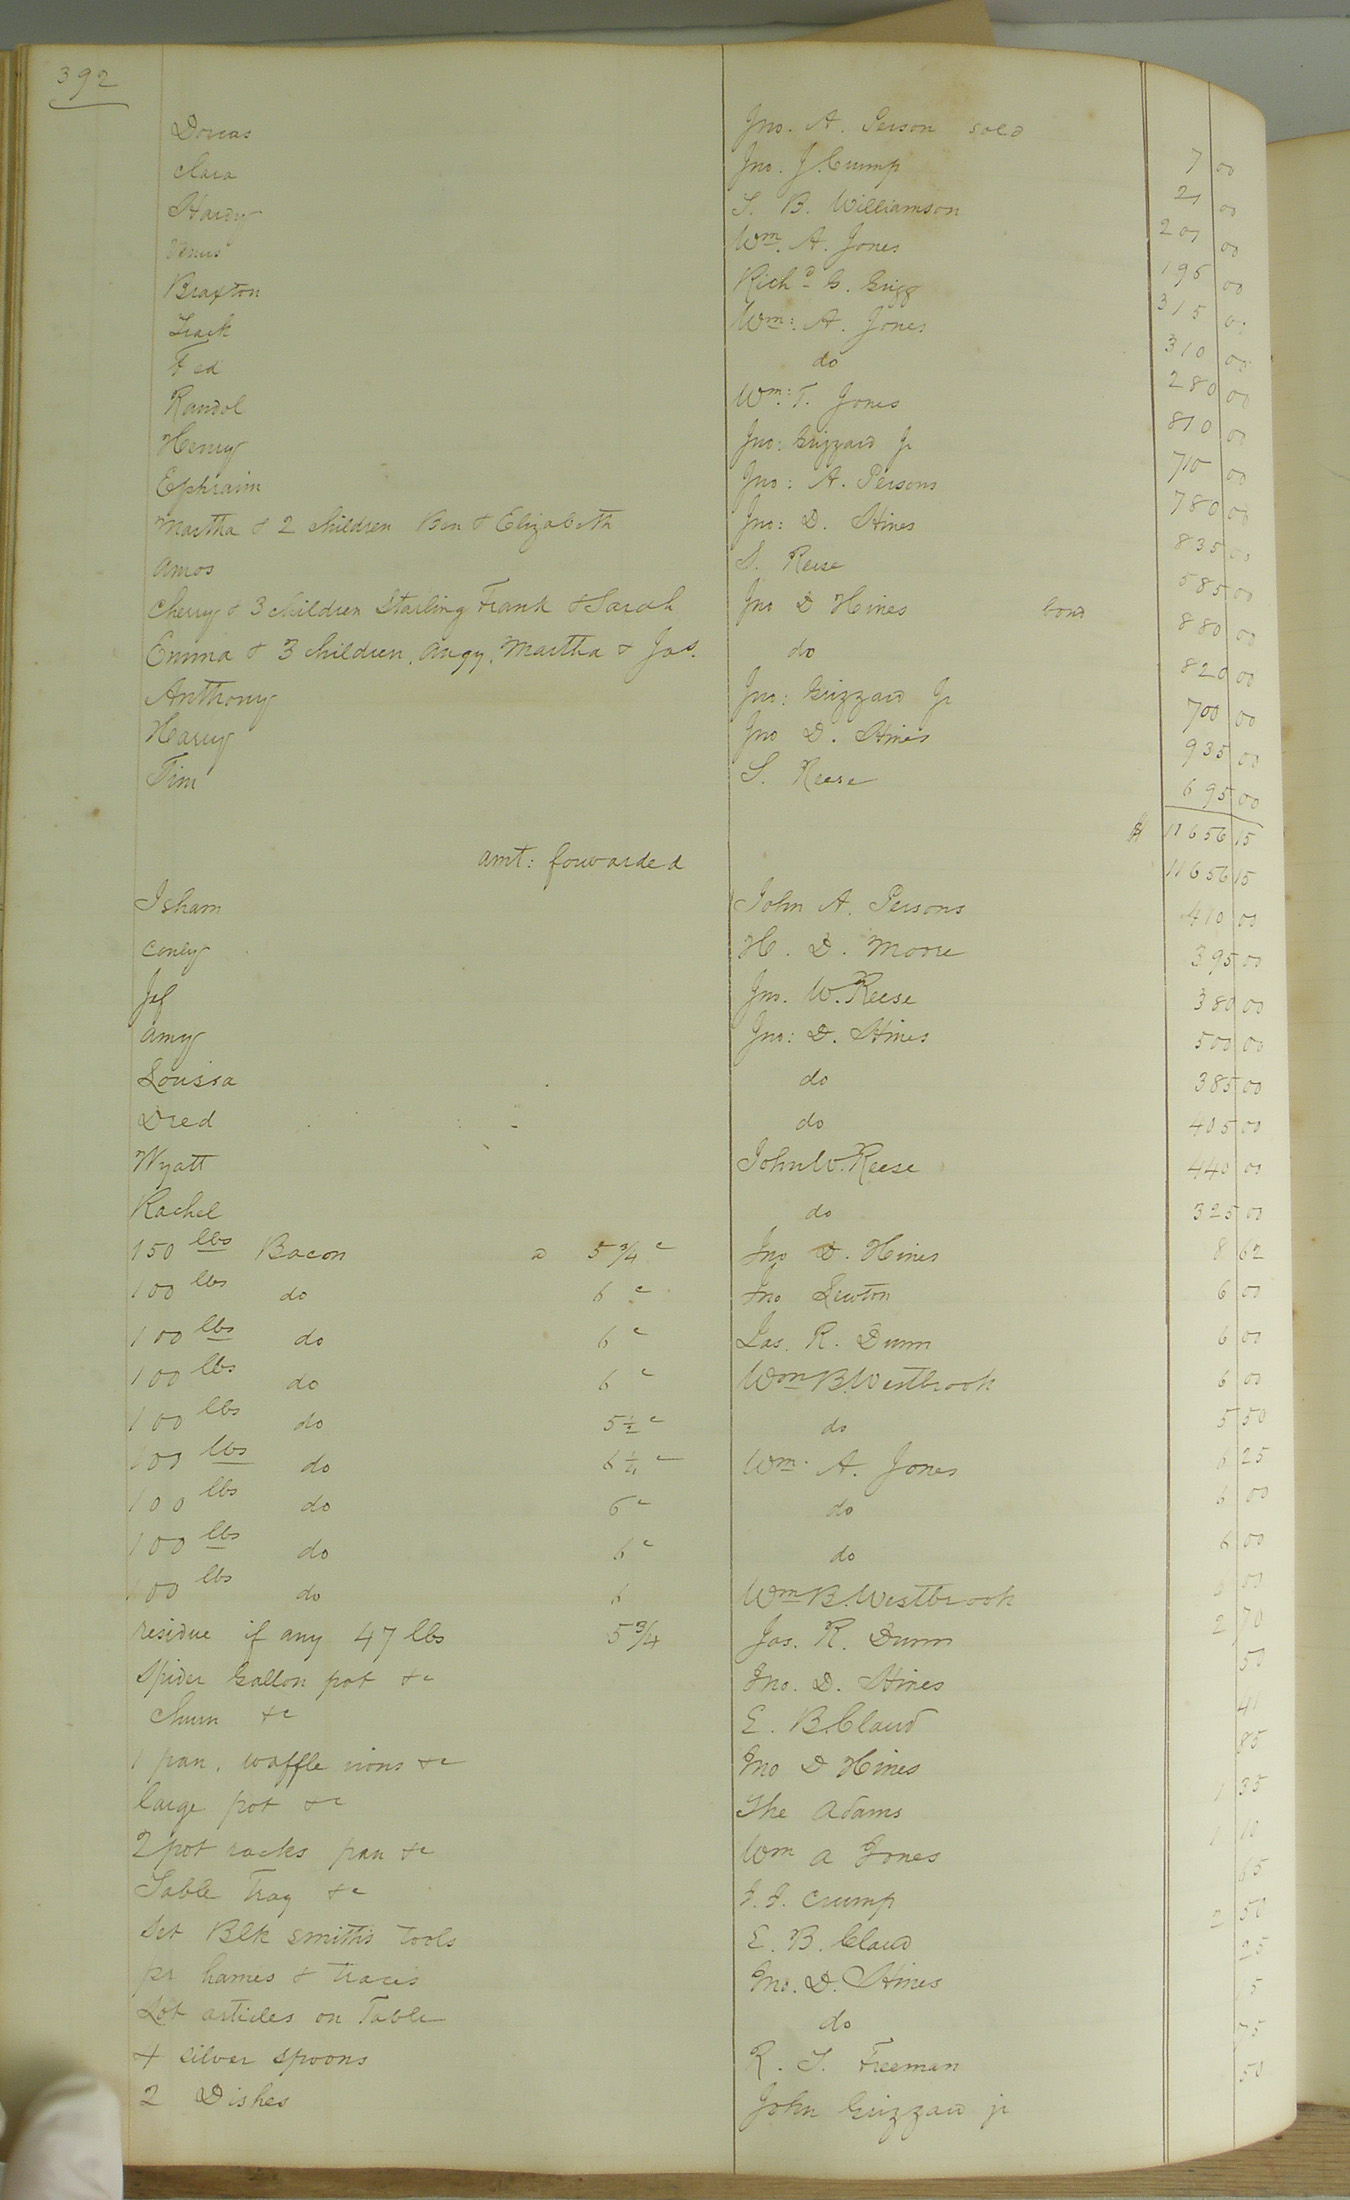 392
Dorcas Jno. A. Person sold 7 00
Clara Jno. J. Crump 21 00
Hardy S. B. Williamson 201 00
Venus Wm. A. Jones 195 00
Braxton Richd G. Grigg 315 00
Isack Wm: A. Jones 310 00
Fed do 280 00
Randol Wm: T. Jones 810 00
Henry Jno: Grizzard Jr 710 00
Ephraim Jno: A. Persons 780 00
Martha & 2 children Ben & Elizabeth Jno: D. Hines 835 00
Amos S. Reese 585 00
Cherry & 3 children Starling Frank & Sarah Jno D Hines bond 880 00
Emma & 3 children, Angy, Martha & Jas. do 820 00
Anthony Jno: Grizzard Jr 700 00
Harry Jno D. Hines 935 00
Tim S. Reese 695 00
$ 11656 15
amt: forwarded 11656 15
Isham John A. Persons 410 00
Coney H. D. Moore 395 00
Jef Jno. W. Reese 380 00
Amy Jno: D. Hines 500 00
Louisa do 385 00
Dred do 405 00
Wyatt John W. Reese 440 00
Rachel do 325 00
150 lbs Bacon a 5 3/4 c Jno D. Hines 8 62
100 lbs do 6 c Jno Newton 6 00
100 lbs do 6 c Jas. R. Dunn 6 00
100 lbs do 6 c Wm B. Westbrook 6 00
100 lbs do 5 1/2 c do 5 50
100 lbs do 6 1/4 c Wm. A. Jones 6 25
100 lbs do 6 c do 6 00
100 lbs do 6 c do 6 00
100 lbs do 6 Wm B. Westbrook 6 00
residue if any 47 lbs 5 3/4 Jas. R. Dunn 2 70
Spider Gallon pot &c Jno. D. Hines 50
Churn &c E. B. Claud 41
1 pan, waffle irons &c Jno D Hines 85
large pot &c The Adams 1 35
2 pot racks pan &c Wm A Jones 1 10
Table Tray &c J. J. Crump 65
Set Blk smiths tools E. B. Claud 2 50
pr hames & traces Jno. D. Hines 25
Lot articles on Table do 5
4 silver spoons R. T. Freeman 75
2 Dishes John Grizzard jr 50